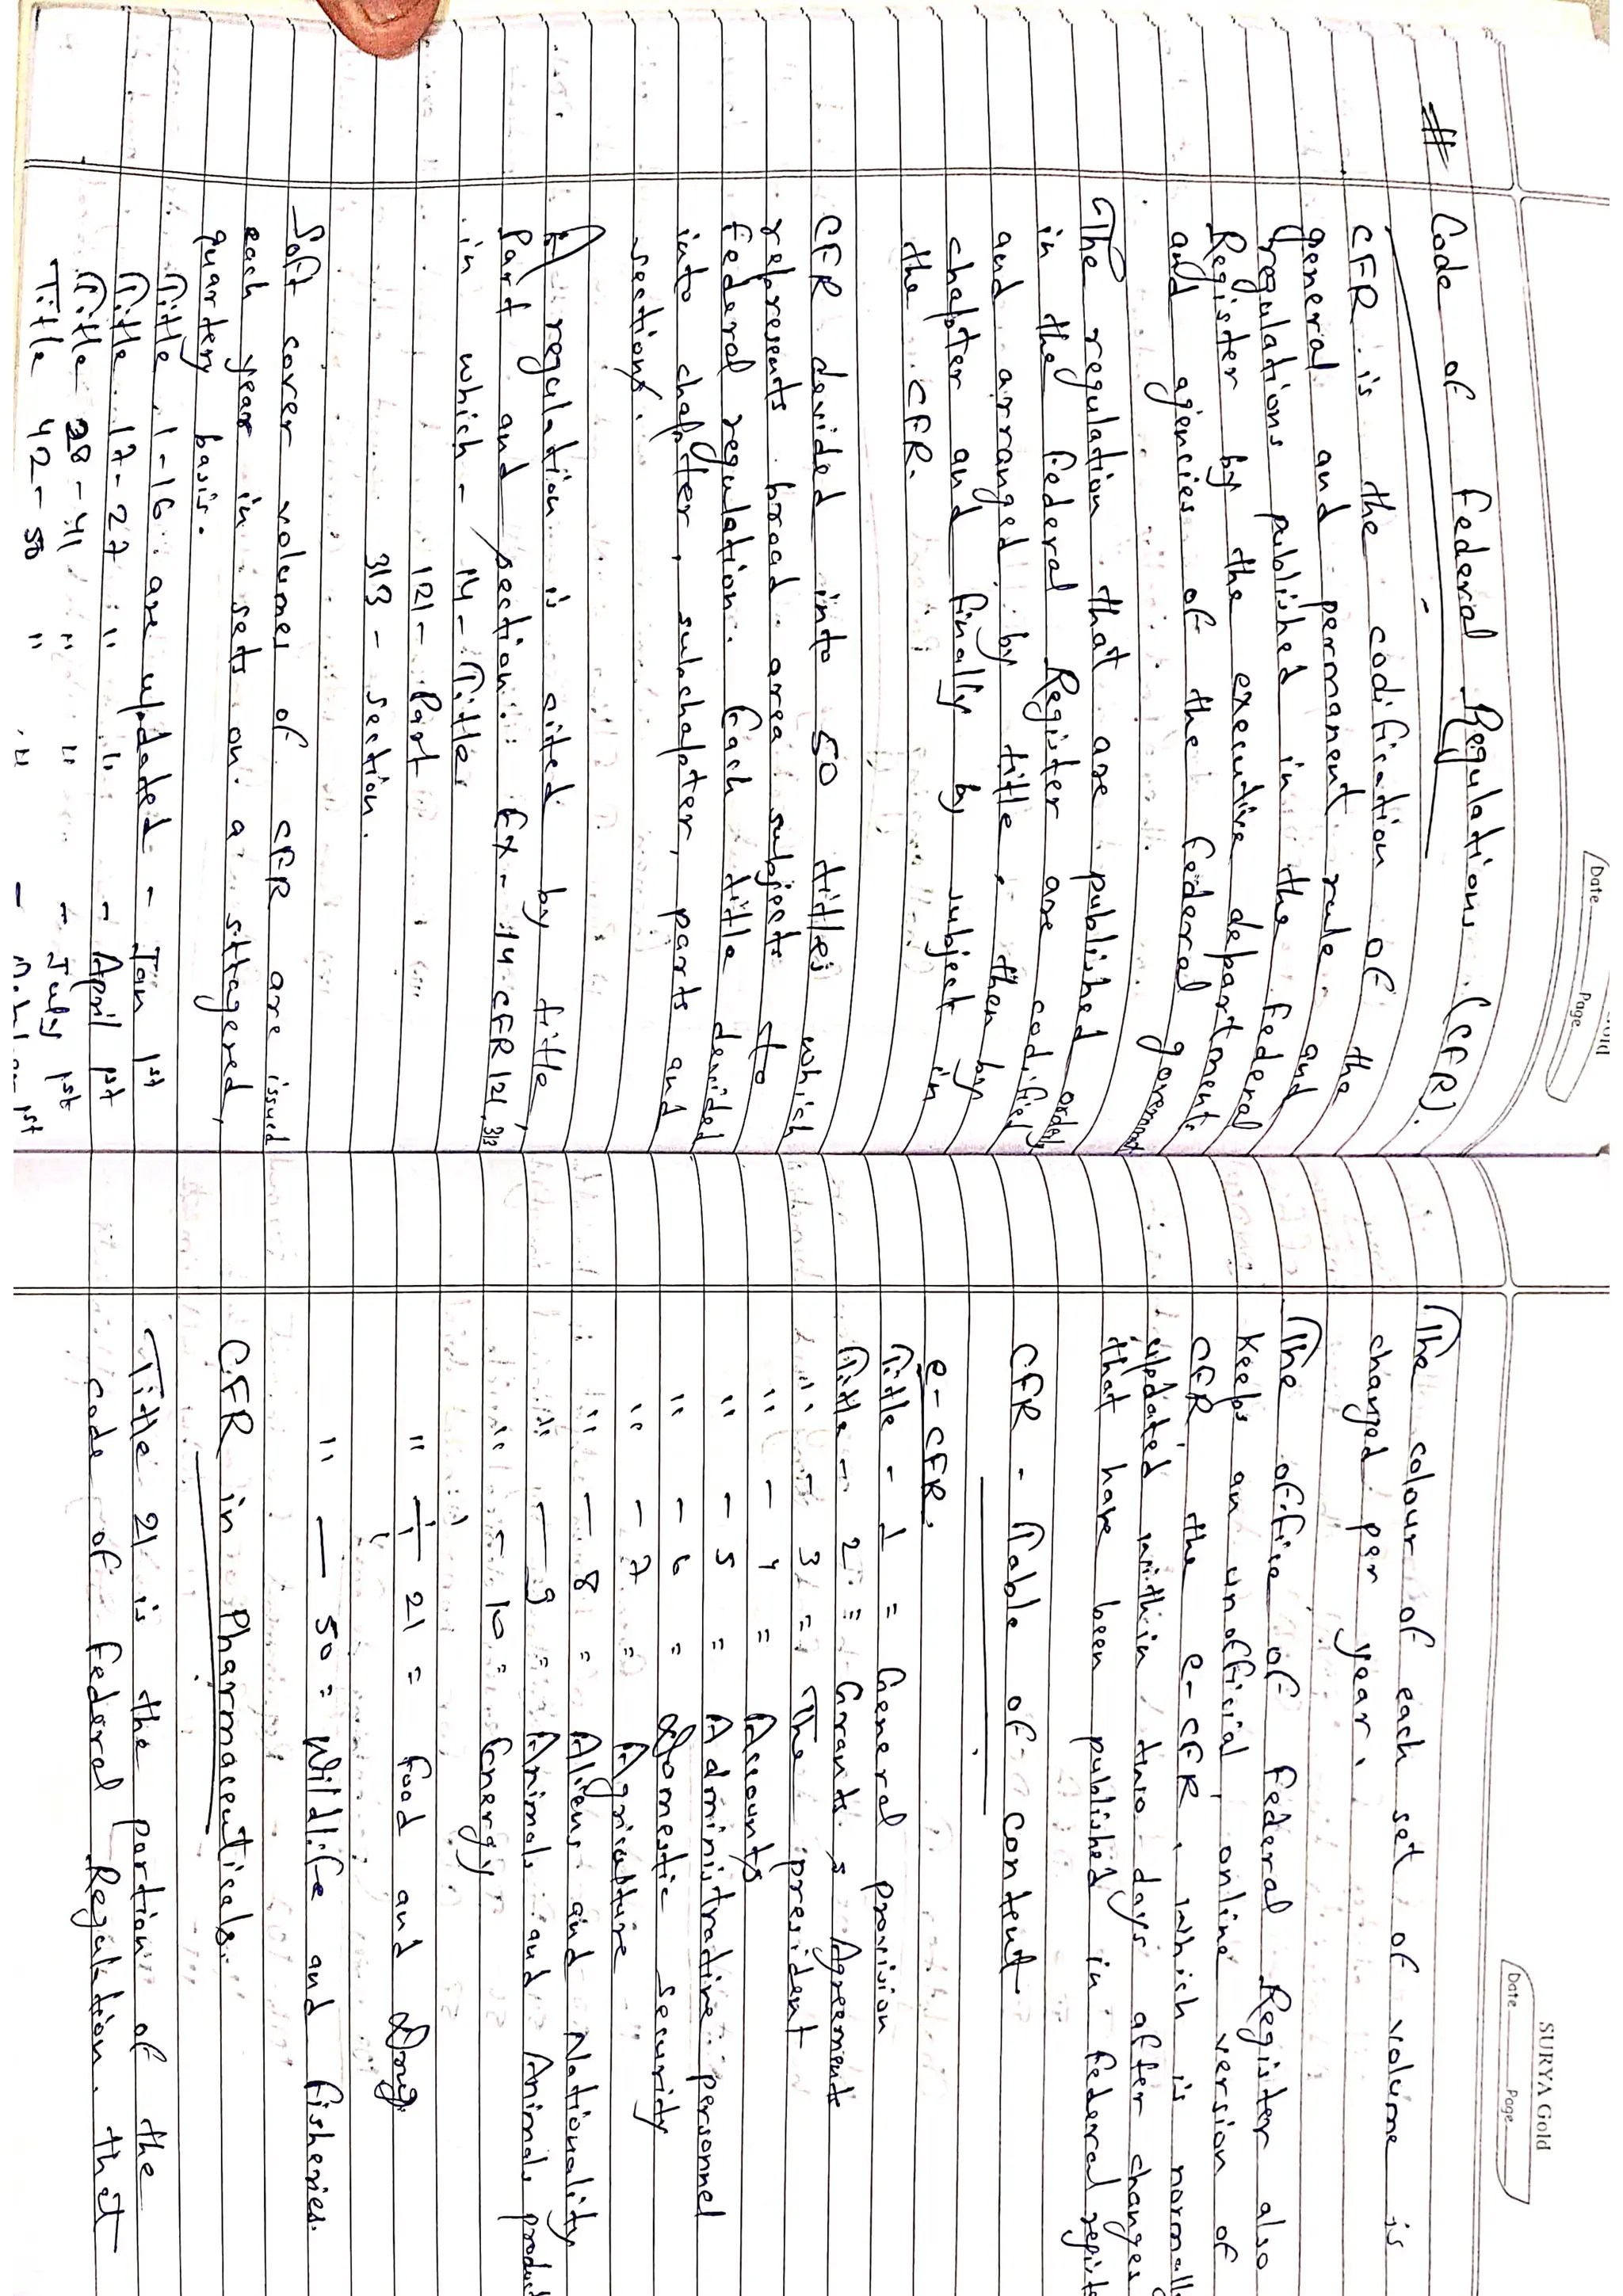 Date Page
# Code of Federal Regulations (CFR).
CFR is the codification of the
general and permanent rule and
regulations published in the Federal
Register by the executive department
and agencies of the Federal goverment
The regulation that are published orderly
in the Federal Register are codified
and arranged by title, then by
chapter and finally by subject in
the CFR.
CFR devided into 50 titles which
represents broad area subjects to
Federal regulation. Each title devided
into chapter, subchapter, parts and
sections.
A regulation is cited by title,
part and section. Ex- 14 CFR 121, 313
in which - 14 - Title
121 - Part
313 - section.
Soft cover volumes of CFR are issued
each year in sets on a staggered,
quartery basis.
Title 1-16 are updated - Jan 1st
Title 17-27 " " - April 1st
Title 28-41 " " - July 1st
Title 42-50 " " - 1st
SURYA Gold
Date Page
The colour of each set of volume is
changed per year.
The office of Federal Register also
keeps an unofficial, online version of
CFR the e-CFR, which is normally
updated within two days after changes
that have been published in Federal
CFR - Table of content
e-CFR.
Title - 1 = General provision
Title - 2 = Grants & Agreements
" - 3 = The president
" - 4 = Accounts
" - 5 = Administrative personnel
" - 6 = Domestic security
" - 7 = Agriculture
" - 8 = Aliens and Nationality
" - 9 = Animals and Animals product
" - 10 = Energy
" - 21 = Food and Drug.
" - 50 = Wildlife and Fisheries.
CFR in Pharmaceuticals.
Title 21 is the portion of the
code of Federal Regulation that